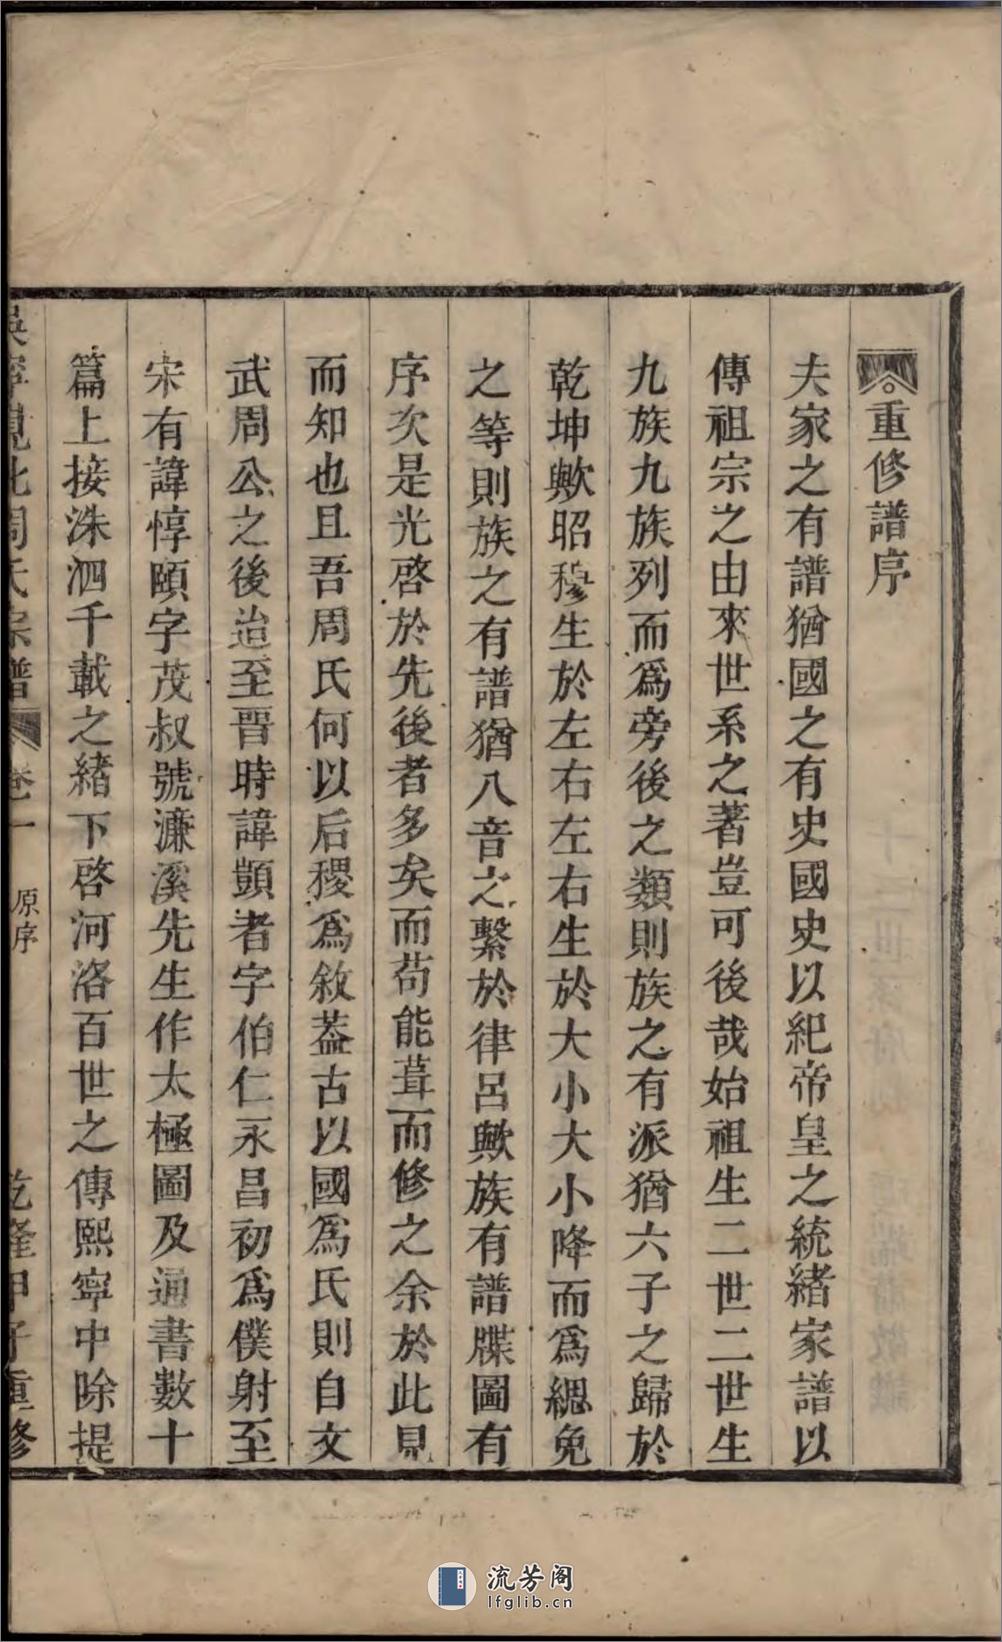 重修譜序
夫家之有譜猶國之有史國史以紀帝皇之統緒家譜以
傳祖宗之由來世系之著豈可後哉始祖生二世二世生
九族九族列而爲旁後之類則族之有派猶六子之歸於
乾坤歟昭穆生於左右左右生於大小大小降而爲緦免
之等則族之有譜猶八音之繫於律呂歟族有譜牒圖有
序次是光啓於先後者多矣而苟能葺而修之余於此見
而知也且吾周氏何以后稷爲敘葢古以國爲氏則自文
武周公之後迨至晉時諱顗者字伯仁永昌初爲僕射至
宋有諱惇頤字茂叔號濂溪先生作太極圖及通書數十
篇上接洙泗千載之緒下啓河洛百世之傳熙寧中除提
吳寧覓北周氏宗譜 卷一 原序 乾隆甲子重修
流芳阁
lfglib.cn